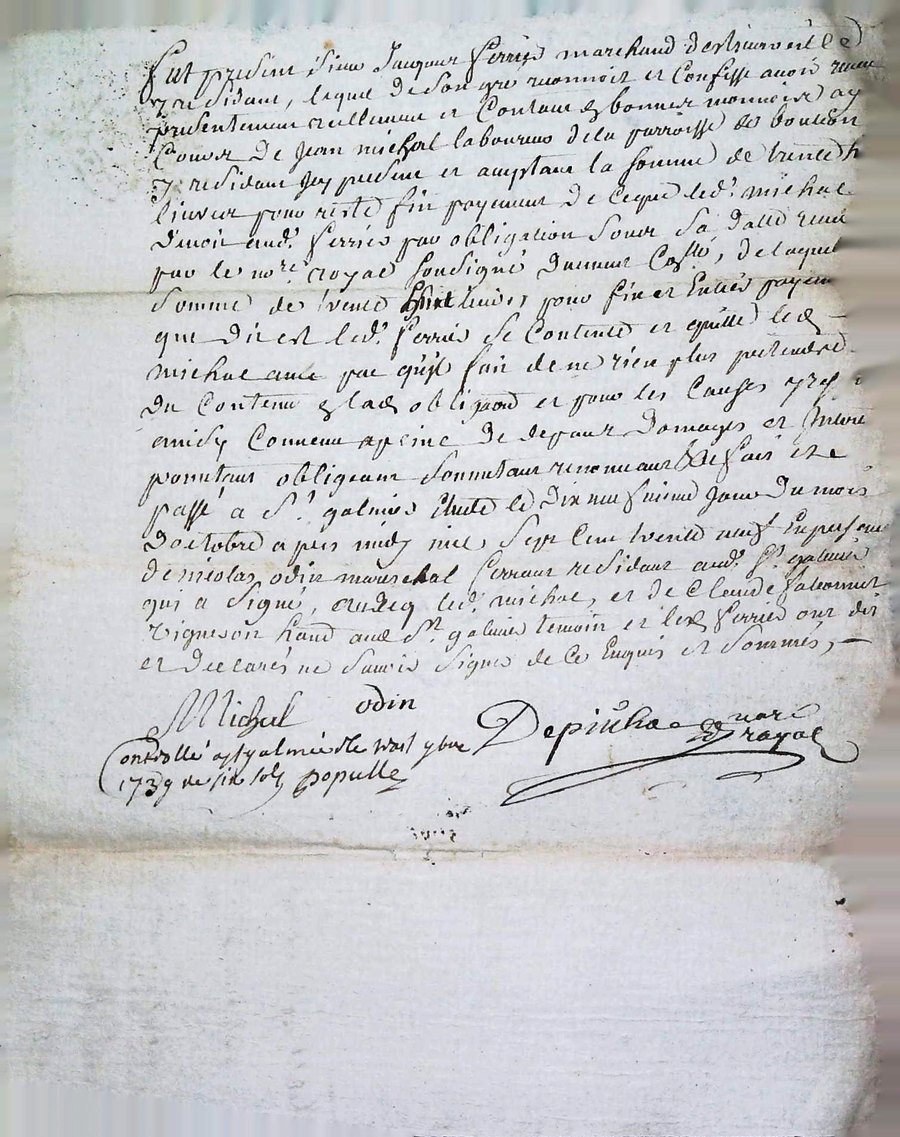 fut present sieur Jacques ferrier marchand
y residant, lequel de son gre reconnoit et Confesse avoir receu
presentement reellement et Contant & bonnes monnoies ay
Cours de Jean michel laboureur de la parroisse de
y residant Jcy present et aceptant la somme de trente h
livres pour reste fin payement de ceque led. michel
devoit aud. ferrier par obligation sous sa datte receue
par le nore. royal soussigné, de laquel
somme de trente huit livres pour fin et Entier payem
que dit est led. ferrier se Contente et quitte led
michel avec pac qu'yl fait de ne rien plus pretendre
du Contenu & lad obligaon et pour les Causes
Convenu a peine de depans domages et Intere
obligeant soumetant renonceant & fait et
passé a St. galmier Etude le dix neufvieme Jour du mois
doctobre apres midy mil sept Cent trente neuf En presence
de nicolas odin mareschal ferrant residant aud. St. galmier
qui a signé, avecq led. michel, et de Claude
vigneron hand aud St. galmier temoin et led ferrier ont dit
et declarés ne savoir signer de ce Enquis et sommés, –
Michel odin
Depiuhac nore royal
Controllé a St galmier le 9bre
1739 de six sols populle